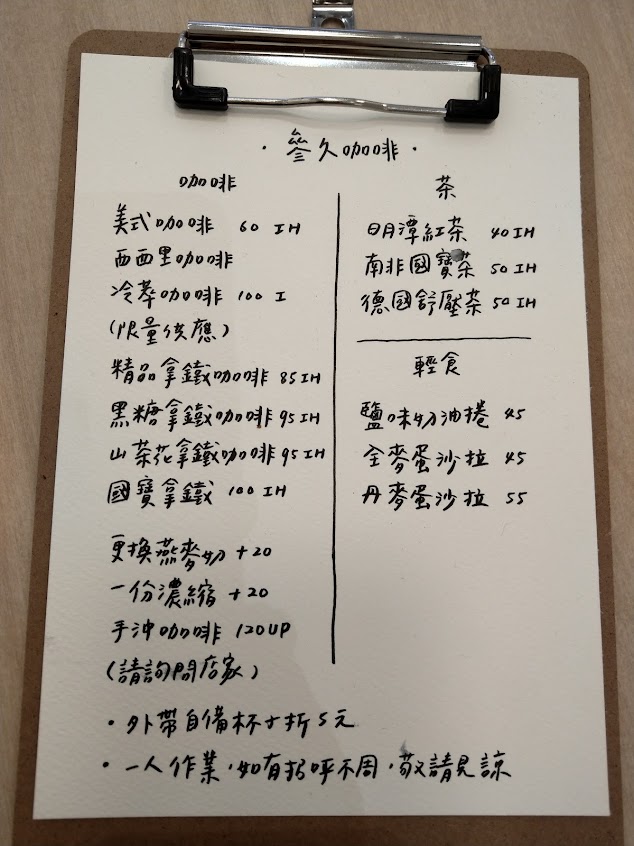 ·參久咖啡·
咖啡
美式咖啡 60 IH
西西里咖啡
冷萃咖啡 100 I
(限量供應)
精品拿鐵咖啡 85 IH
黑糖拿鐵咖啡 95 IH
山茶花拿鐵咖啡 95 IH
國寶拿鐵 100 IH
更換燕麥奶 +20
一份濃縮 +20
手沖咖啡 120UP
(請詢問店家)
茶
日月潭紅茶 40 IH
南非國寶茶 50 IH
德國舒壓茶 50 IH
輕食
鹽味奶油捲 45
全麥蛋沙拉 45
丹麥蛋沙拉 55
·外帶自備杯才折5元
·一人作業,如有招呼不周,敬請見諒